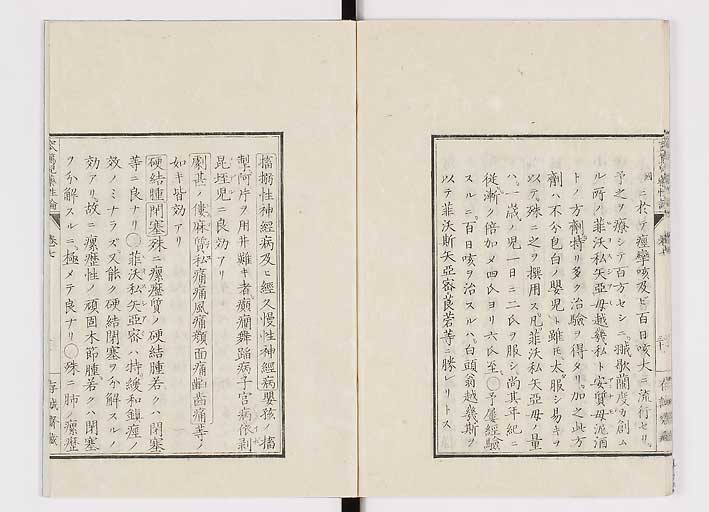 國ニ於テ痙攣咳及ビ百日咳大ニ流行セリ
予之ヲ療シテ百方セシニ蘭度カ創ム
ル所ノ菲沃私矢亞母越幾私ト安質母扼酒
トノ方劑特リ多ク治驗ヲ得タリ加之此方
劑ハ不分包白ノ嬰児ト雖モ太服シ易キヲ
以テ殊ニ之ヲ撰用ス凡菲沃私矢亞母ノ量
ハ一歳ノ児一日ニ二氏ヲ服シ尚其年紀ニ
從漸ク倍加メ四氏ヨリ六氏至〇予屢經驗
スルニ百日咳ヲ治スルハ白頭翁越幾斯ヲ
以テ菲沃斯矢亞密良若等ニ勝レリトス
搐搦性神經病及ヒ經久慢性神經病嬰孩ノ搐
掣阿片ヲ用井難キ者癲癇舞蹈病子宮病依剝
昆垤児ニ良効アリ
劇甚ノ僂麻質私痛痛風痛顔面痛齲齒痛等ノ
如キ皆効アリ
硬結腫閉塞殊ニ瘰癧質ノ硬結腫若クハ閉塞
等ニ良ナリ〇菲沃私矢亞密ハ持緩和鎮痙ノ
效ノミナラズ又能ク硬結閉塞ヲ分解スルノ
効アリ故ニ瘰癧性ノ頑固木節腫若クハ閉塞
ヲ分解スルニ極メテ良ナリ〇殊ニ肺ノ瘰癧
藥性論
卷七
存誠齋藏